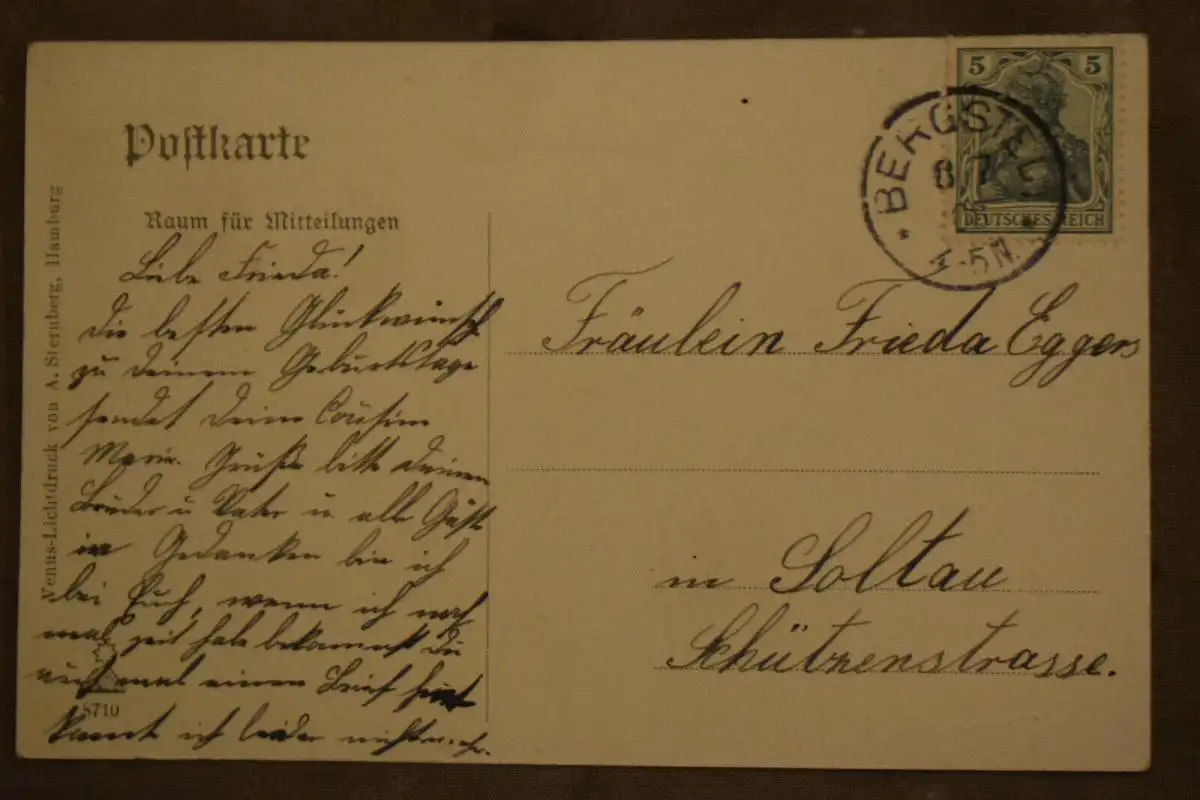 Postkarte
Raum für Mitteilungen
Venus-Lichtdruck von A. Sternberg, Hamburg
Liebe Frieda!
Die besten Glückwünsche
zu Deinem Geburtstage
sendet Deine Cousine
Marie. Grüße bitte Deinen
Bruder u Vater u alle Gäste
in Gedanken bin ich
bei Euch, wenn ich noch
mal zeit habe bekommst Du
auch mal einen Brief heute
konnt ich leider nicht mehr.
8710
5 5
DEUTSCHES REICH
BERGSTE
8 7
4-5N.
Fräulein Frieda Eggers
in Soltau
Schützenstrasse.